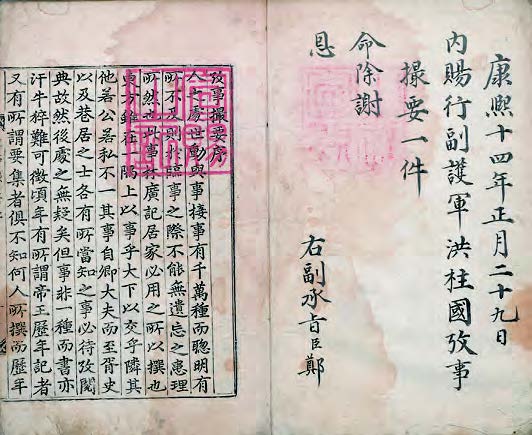 康熙十四年正月二十九日
內賜行副護軍洪柱國攷事
撮要一件
命除謝
恩
右副承旨臣鄭
攷事撮要序
人之處世動與事接事有千萬種而聰明有
所不及則於臨事之際不能無遺忘之患理
所然也此事林廣記居家必用之所以撰也
東方雖在一隅上以事乎大下以交乎隣其
他若公若私不一其事自卿大夫而至胥史
以及巷居之士各有所當知之事必待攷閱
典故然後處之無疑矣但事非一種而書亦
汗牛粹難可徵頃年有所謂帝王歷年記者
又有所謂要集者俱不知何人所撰而歷年